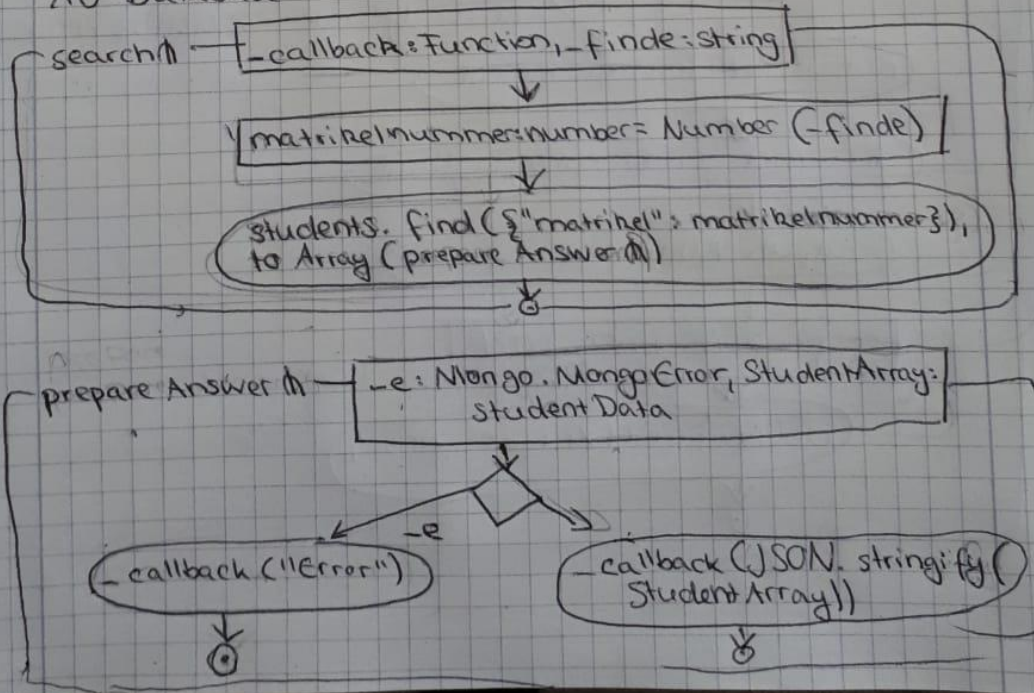 search ⋔
_callback: Function, _finde: string
matrikelnummer: number = Number (_finde)
students. find ({"matrikel": matrikelnummer}).
to Array (prepare Answer ⋔)
prepare Answer ⋔
_e: Mongo. MongoError, StudentArray:
studentData
_e
_callback ("Error")
_callback (JSON. stringify (
StudentArray))